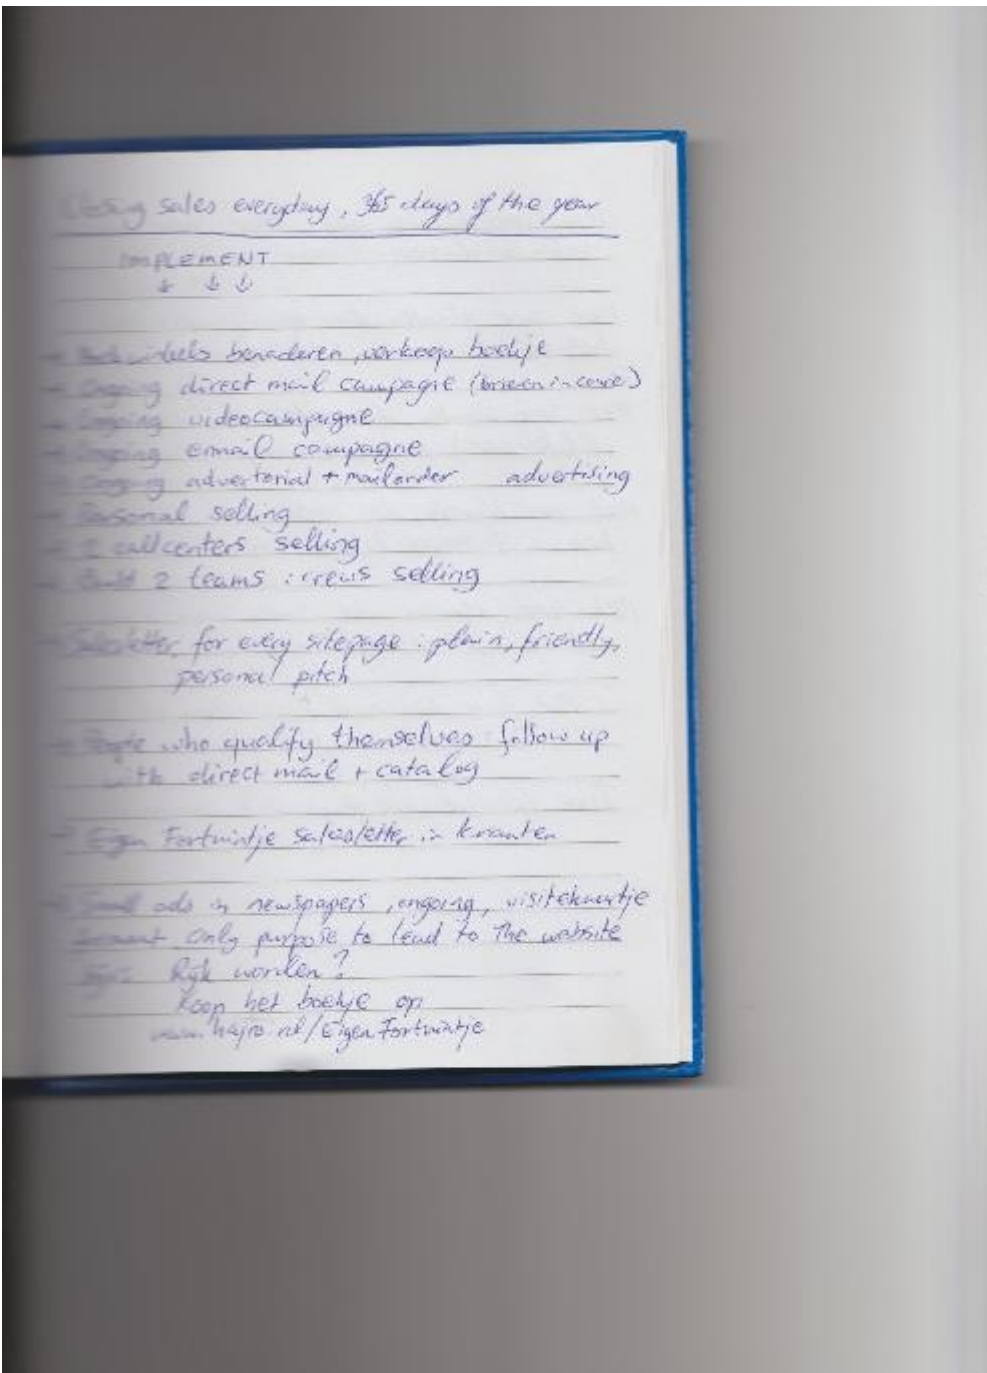 Closing sales everyday, 365 days of the year
IMPLEMENT
→ Boekwinkels benaderen, verkoop boekje
→ Ongoing direct mail campagne (brieven in couve)
→ Ongoing videocampagne
→ Ongoing email campagne
→ Ongoing advertorial + mailorder advertising
→ Personal selling
→ 2 callcenters selling
→ Build 2 teams : crews selling
→ Salesletter for every sitepage : plain, friendly,
personal pitch
→ People who qualify themselves follow up
with direct mail + catalog
→ Eigen Fortuintje salesletter in kranten
→ Small ads in newspapers, ongoing, visitekaartje
formaat only purpose to lead to the website
Rijk worden?
Koop het boekje op
www.hajro.nl/EigenFortuintje